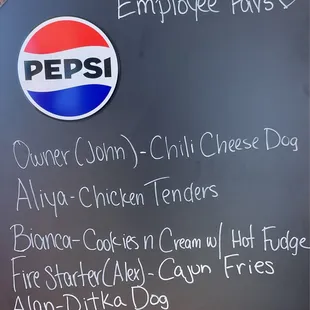 Employee Favs
PEPSI
Owner (John) - Chili Cheese Dog
Aliya - Chicken Tenders
Bianca - Cookies n Cream w/ Hot Fudge
Fire Starter (Alex) - Cajun Fries
Alan - Ditka Dog